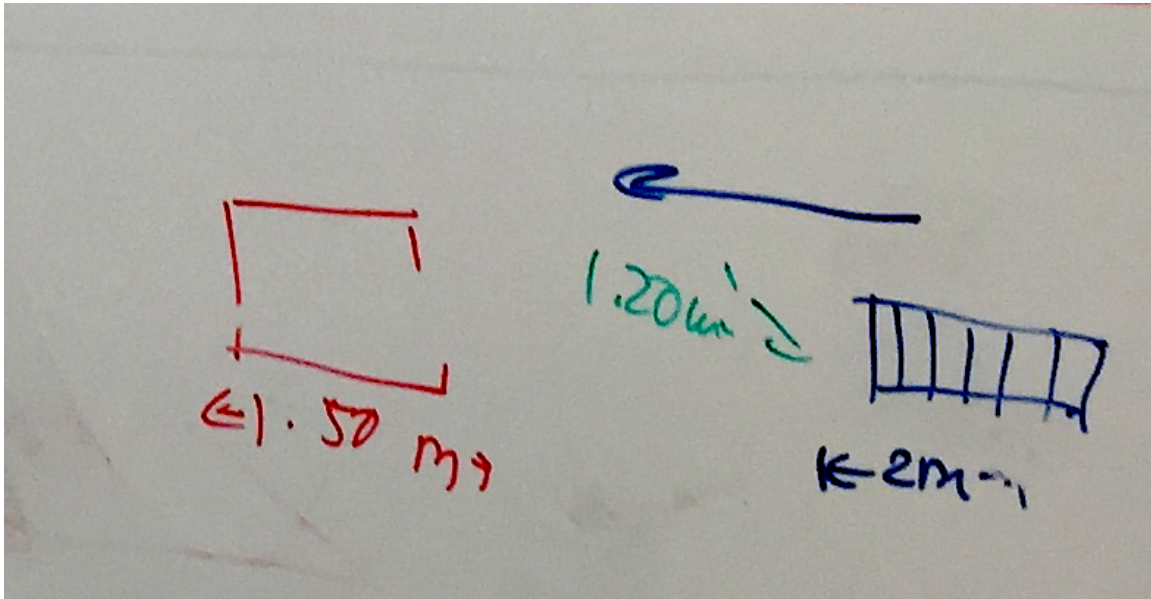 1.20m
←1.50 m→
←2m